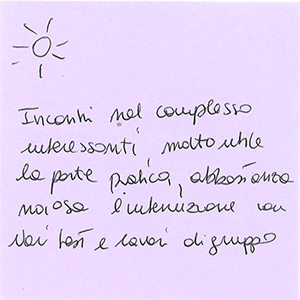 Incontri nel complesso
interessanti, molto utile
la parte pratica, abbastanza
noiosa l'interazione con
vari test e lavori di gruppo